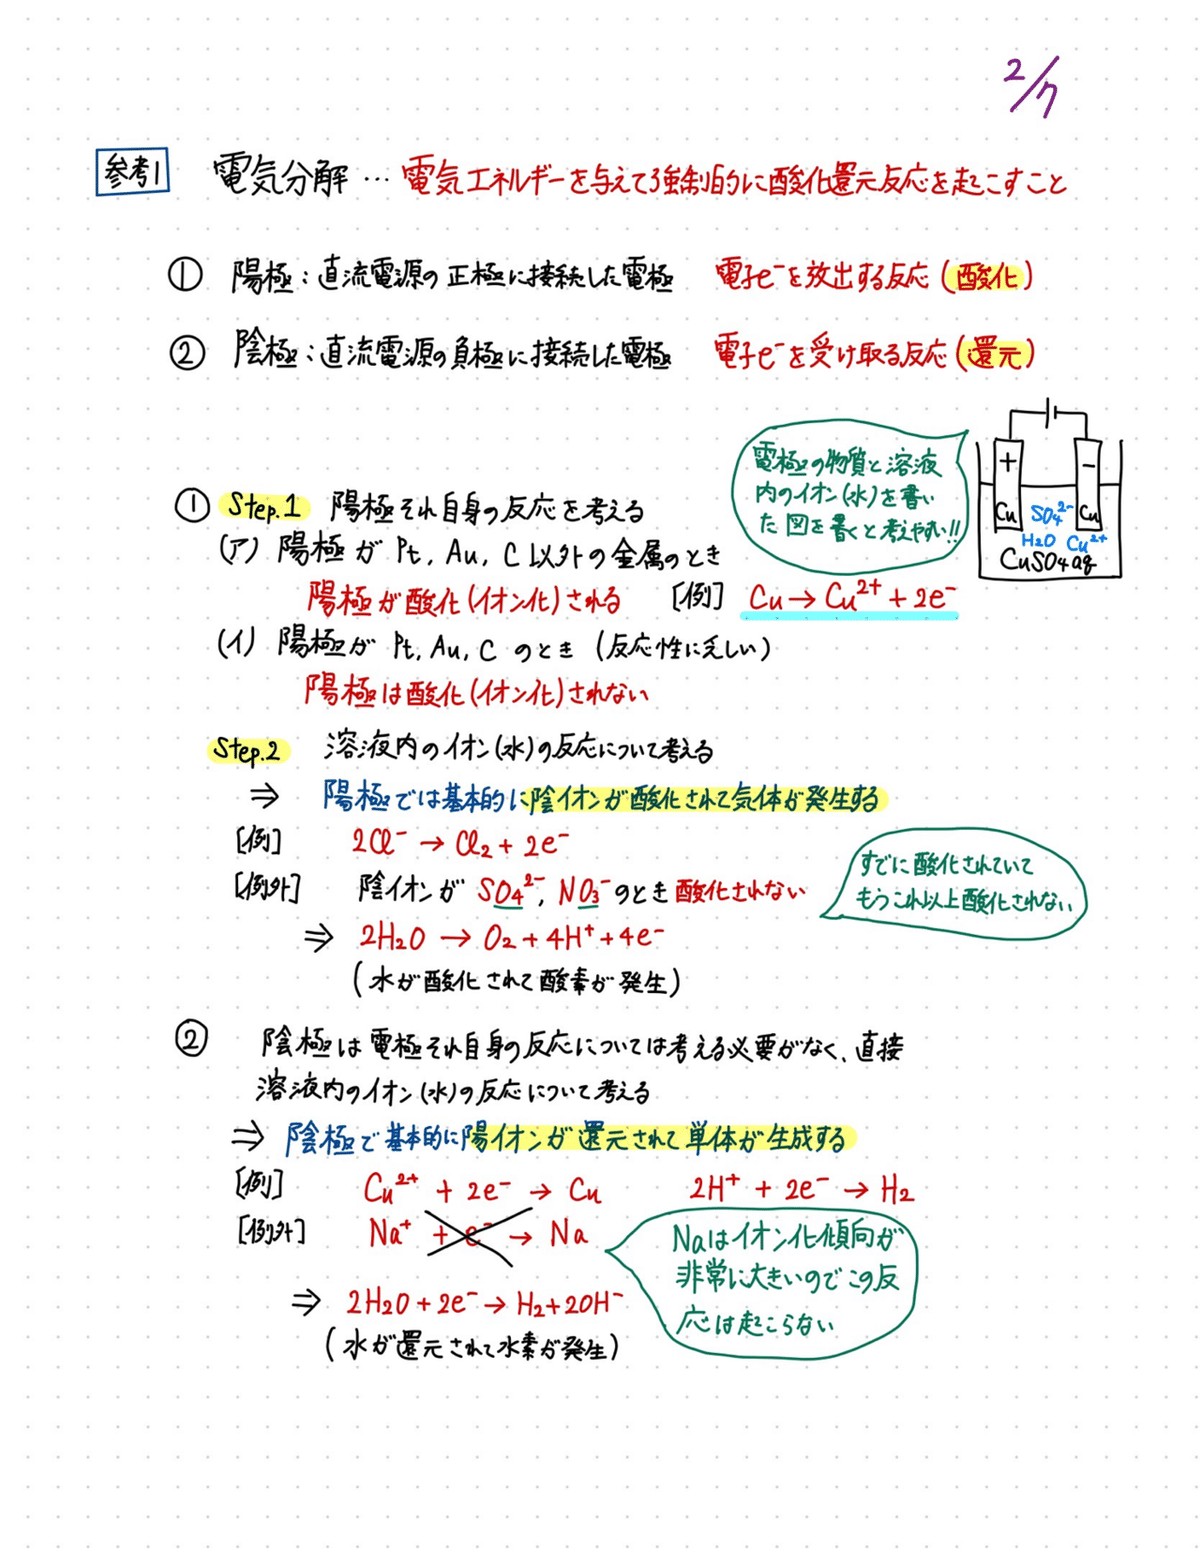 2/7
参考1 電気分解…電気エネルギーを与えて強制的に酸化還元反応を起こすこと
① 陽極：直流電源の正極に接続した電極 電子e⁻を放出する反応(酸化)
② 陰極：直流電源の負極に接続した電極 電子e⁻を受け取る反応(還元)
電極の物質と溶液
内のイオン(水)を書い
た図を書くと考えやすい!!
+ −
Cu SO₄²⁻ Cu
H₂O Cu²⁺
CuSO₄aq
① Step.1 陽極それ自身の反応を考える
(ア) 陽極が Pt, Au, C以外の金属のとき
陽極が酸化(イオン化)される [例] Cu → Cu²⁺ + 2e⁻
(イ) 陽極が Pt, Au, C のとき (反応性に乏しい)
陽極は酸化(イオン化)されない
Step.2 溶液内のイオン(水)の反応について考える
⇒ 陽極では基本的に陰イオンが酸化されて気体が発生する
[例] 2Cl⁻ → Cl₂ + 2e⁻
[例外] 陰イオンが SO₄²⁻, NO₃⁻ のとき酸化されない
すでに酸化されていて
もうこれ以上酸化されない
⇒ 2H₂O → O₂ + 4H⁺ + 4e⁻
(水が酸化されて酸素が発生)
② 陰極は電極それ自身の反応については考える必要がなく、直接
溶液内のイオン(水)の反応について考える
⇒ 陰極で基本的に陽イオンが還元されて単体が生成する
[例] Cu²⁺ + 2e⁻ → Cu 2H⁺ + 2e⁻ → H₂
[例外] Na⁺ + e⁻ → Na
Naはイオン化傾向が
非常に大きいのでこの反
応は起こらない
⇒ 2H₂O + 2e⁻ → H₂ + 2OH⁻
(水が還元されて水素が発生)